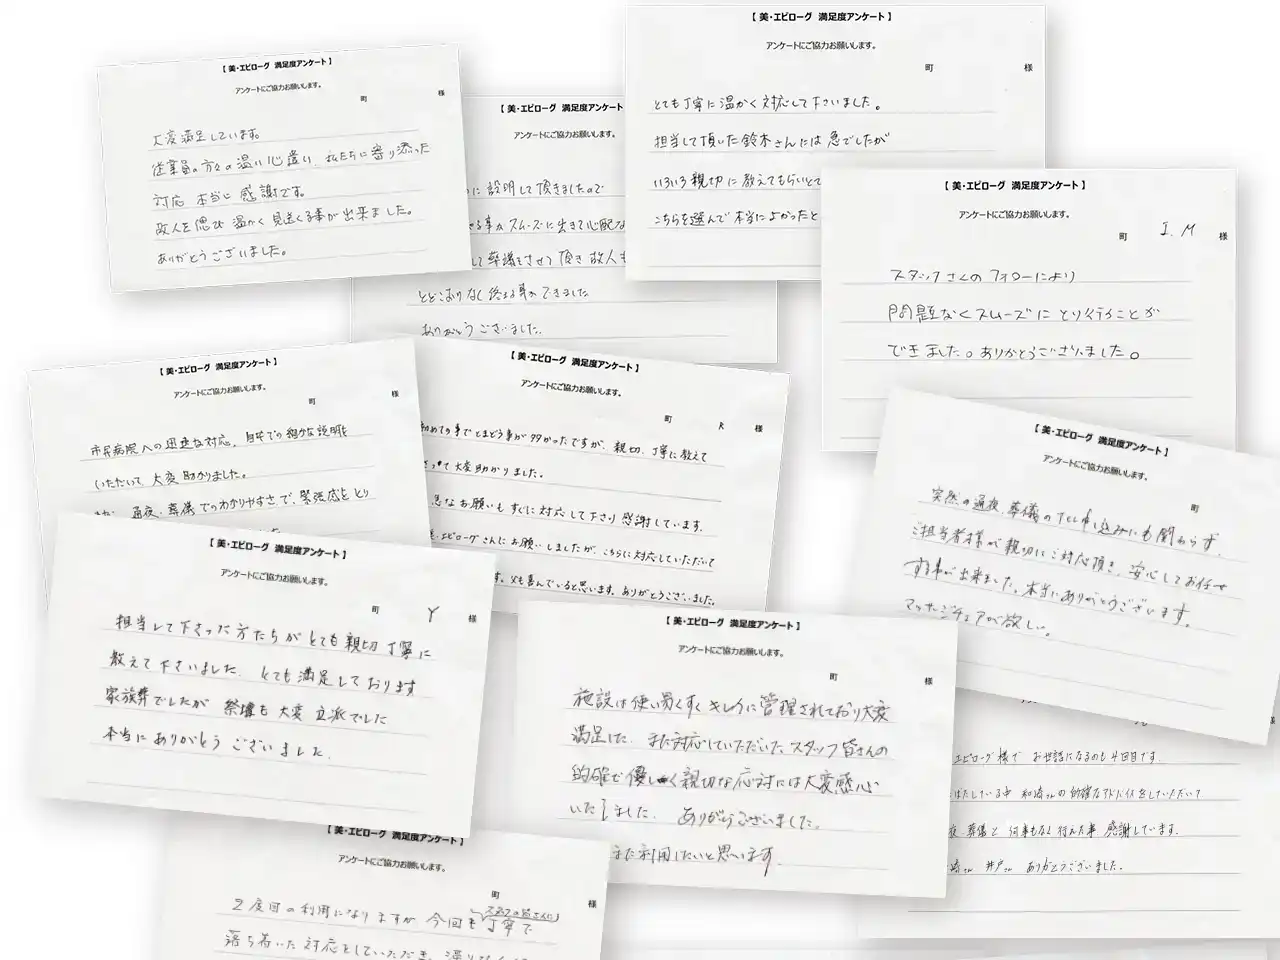 【 美・エピローグ 満足度アンケート 】
アンケートにご協力お願いします。
町 様
大変満足しています。
従業員の方々の温い心遣い、私たちに寄り添った
対応 本当に 感謝です。
故人を偲び 温かく 見送くる事が 出来ました。
ありがとうございました。
【 美・エピローグ 満足度アンケート
アンケートにご協力お願いします。
に 説明して頂きましたので
事がスムーズに 出きて心配な
して 葬儀をさせて 頂き 故人も
とどこおりなく 終る事ができました
ありがとう ございました。
【 美・エピローグ 満足度アンケート 】
アンケートにご協力お願いします。
町 様
とても丁寧に温かく対応して下さいました。
担当して頂いた鈴木さんには 急でしたが
いろいろ親切に教えてもらいとて
こちらを選んで本当によかったと
【 美・エピローグ 満足度アンケート 】
アンケートにご協力お願いします。
町 I.M 様
スタッフさんの フォローにより
問題なくスムーズに とり行うことが
できました。ありがとうございました。
【 美・エピローグ 満足度アンケート 】
アンケートにご協力お願いします。
町 様
市民病院への迅速な対応、自宅での細かな説明を
いただいて、大変助かりました。
通夜、葬儀でのわかりやすさで、緊張感をとり
【 美・エピローグ 満足度アンケート 】
アンケートにご協力お願いします。
町 K 様
初めての事でとまどう事が多かったですが、親切、丁寧に教えて
さって大変助かりました。
急なお願いも すぐに対応して下さり 感謝しています。
エピローグさんにお願いしましたが、こちらに対応していただいて
す。父も喜んでいると思います。ありがとうございました。
【 美・エピローグ 満足度アンケート 】
アンケートにご協力お願いします。
町
突然の通夜 葬儀のTEL申し込みにも関わらず、
ご担当者様が親切にご対応頂き、安心してお任せ
する事が出来ました。本当にありがとうございます。
マッサージチェアが欲しい。
【 美・エピローグ 満足度アンケート 】
アンケートにご協力お願いします。
町 Y 様
担当して下さった方たちが とても親切 丁寧に
教えて下さいました。とても満足しております
家族葬でしたが 祭壇も 大変 立派でした
本当にありがとう ございました。
【 美・エピローグ 満足度アンケート 】
アンケートにご協力お願いします。
町 様
施設は使い易くすく キレイに管理されており大変
満足した。また対応していただいた スタッフ皆さんの
的確で優しく 親切な応対には大変感心
いたしました。 ありがとうございました。
また利用したいと思います。
様
エピローグ様で お世話になるのも4回目です。
ばたしている中 の的確なアドバイスをしていただいて
夜 葬儀と 何事もなく 行えた事 感謝しています。
井戸さん ありがとうございました。
【 美・エピローグ 満足度アンケート 】
アンケートにご協力お願いします。
町 様
2度目の利用になりますが 今回も スタッフの皆さんに 丁寧で
落ち着いた 対応をしていただき、